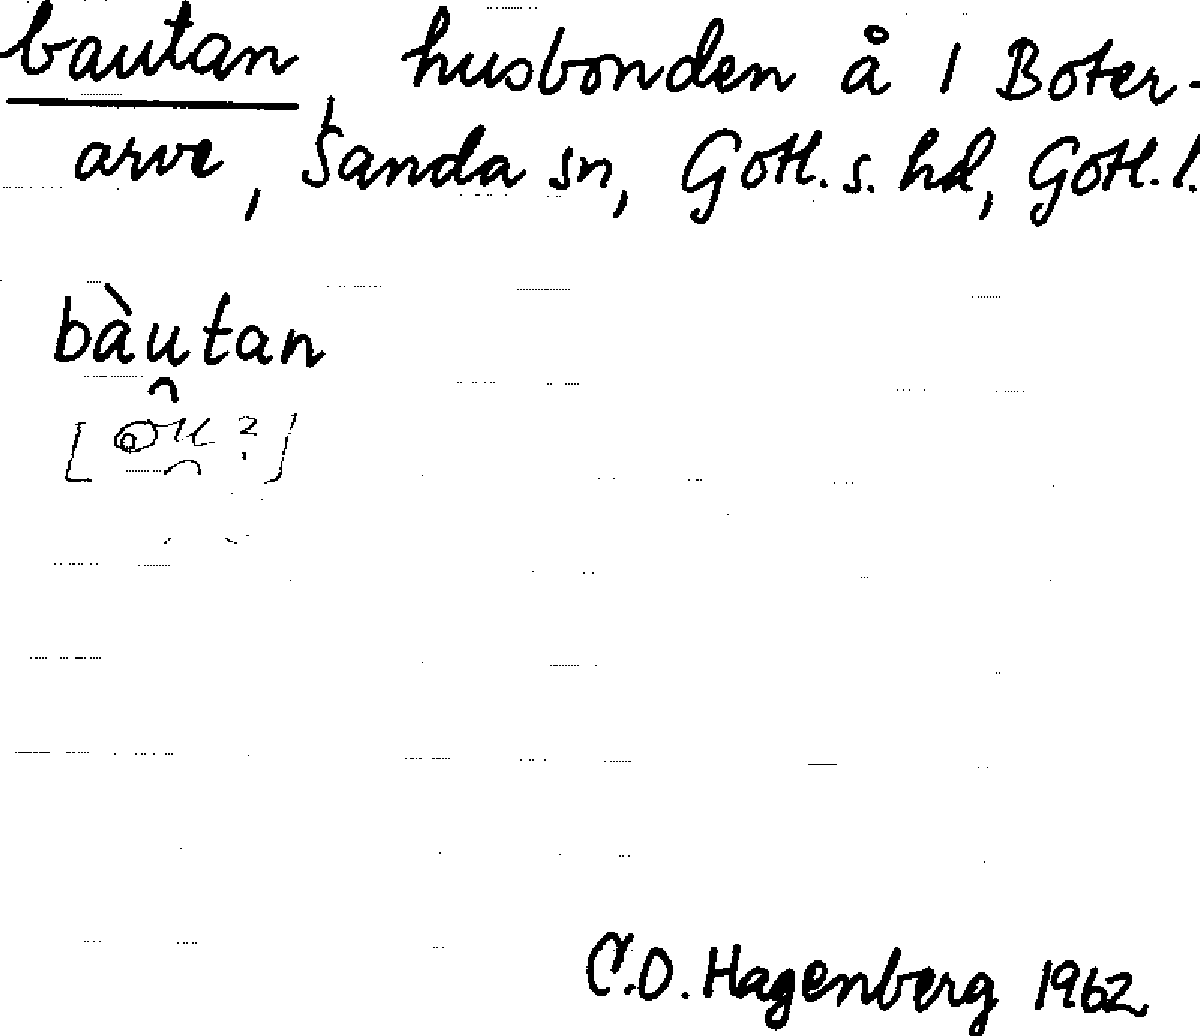 bautan husbonden å 1 Boter-
arve, Sanda sn, Gotl. s. hd, Gotl. l.
bàu̯tan
C.O. Hagenberg 1962